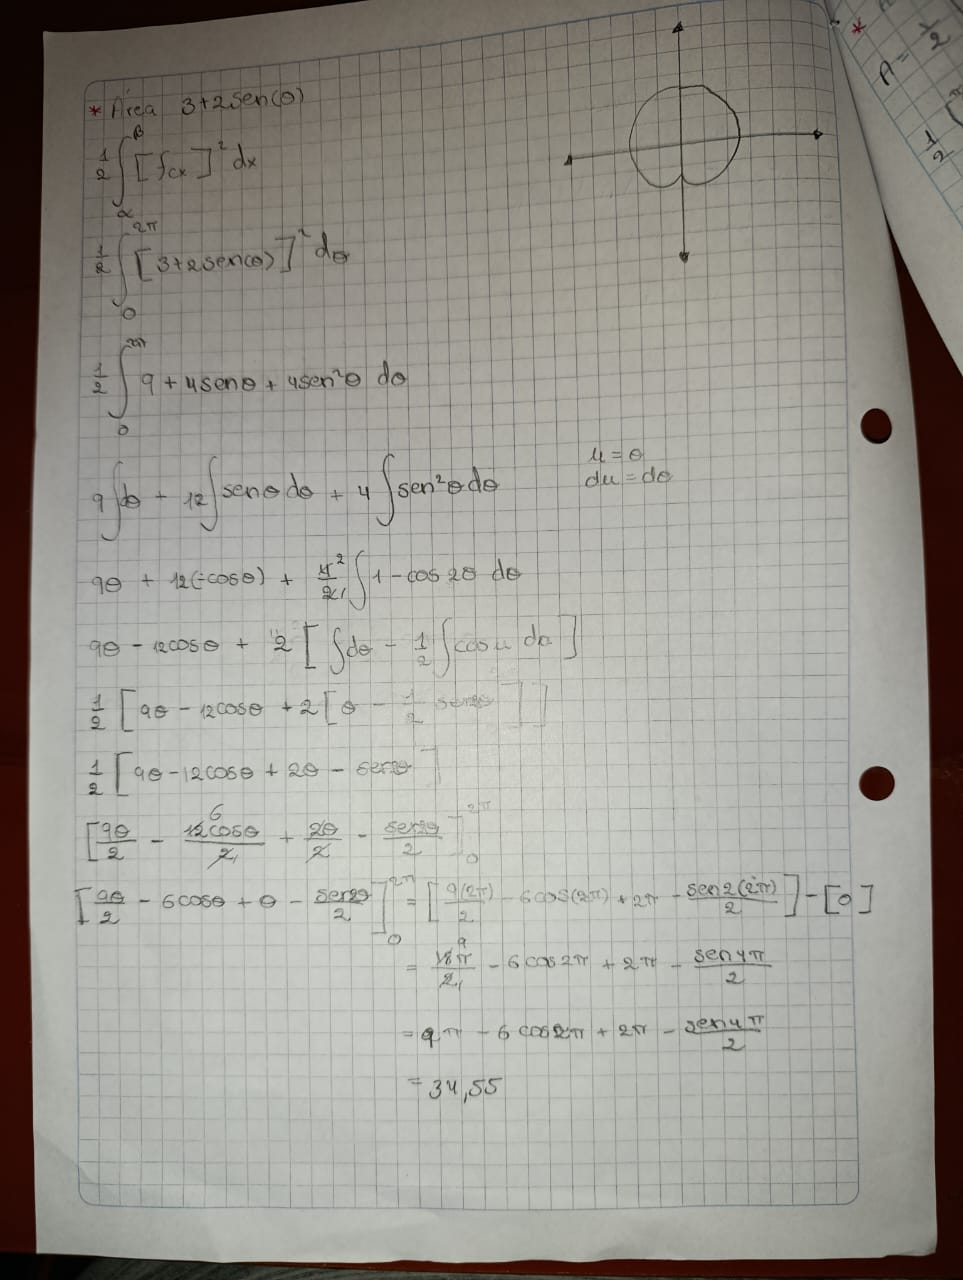 * Área 3+2sen(θ)
1/2 ∫_α^β [f(x)]² dx
1/2 ∫_0^2π [3+2sen(θ)]² dθ
1/2 ∫_0^2π 9 + 4senθ + 4sen²θ dθ
9∫dθ + 12∫senθ dθ + 4∫sen²θ dθ
u = θ
du = dθ
9θ + 12(-cosθ) + 4/2 2/1 ∫1 - cos 2θ dθ
9θ - 12cosθ + 2[∫dθ - 1/2 ∫cos u du]
1/2 [9θ - 12cosθ + 2[θ - 1/2 sen2θ]]
1/2 [9θ - 12cosθ + 2θ - sen2θ]
[9θ/2 - 12cosθ/2 6/1 + 2θ/2 - sen2θ/2]_0^2π
[9θ/2 - 6cosθ + θ - sen2θ/2]_0^2π = [9(2π)/2 - 6cos(2π) + 2π - sen2(2π)/2] - [0]
= 18π/2 9/1 - 6cos2π + 2π - sen4π/2
= 9π - 6cos2π + 2π - sen4π/2
= 34,55
*
A = 1/2
1/2